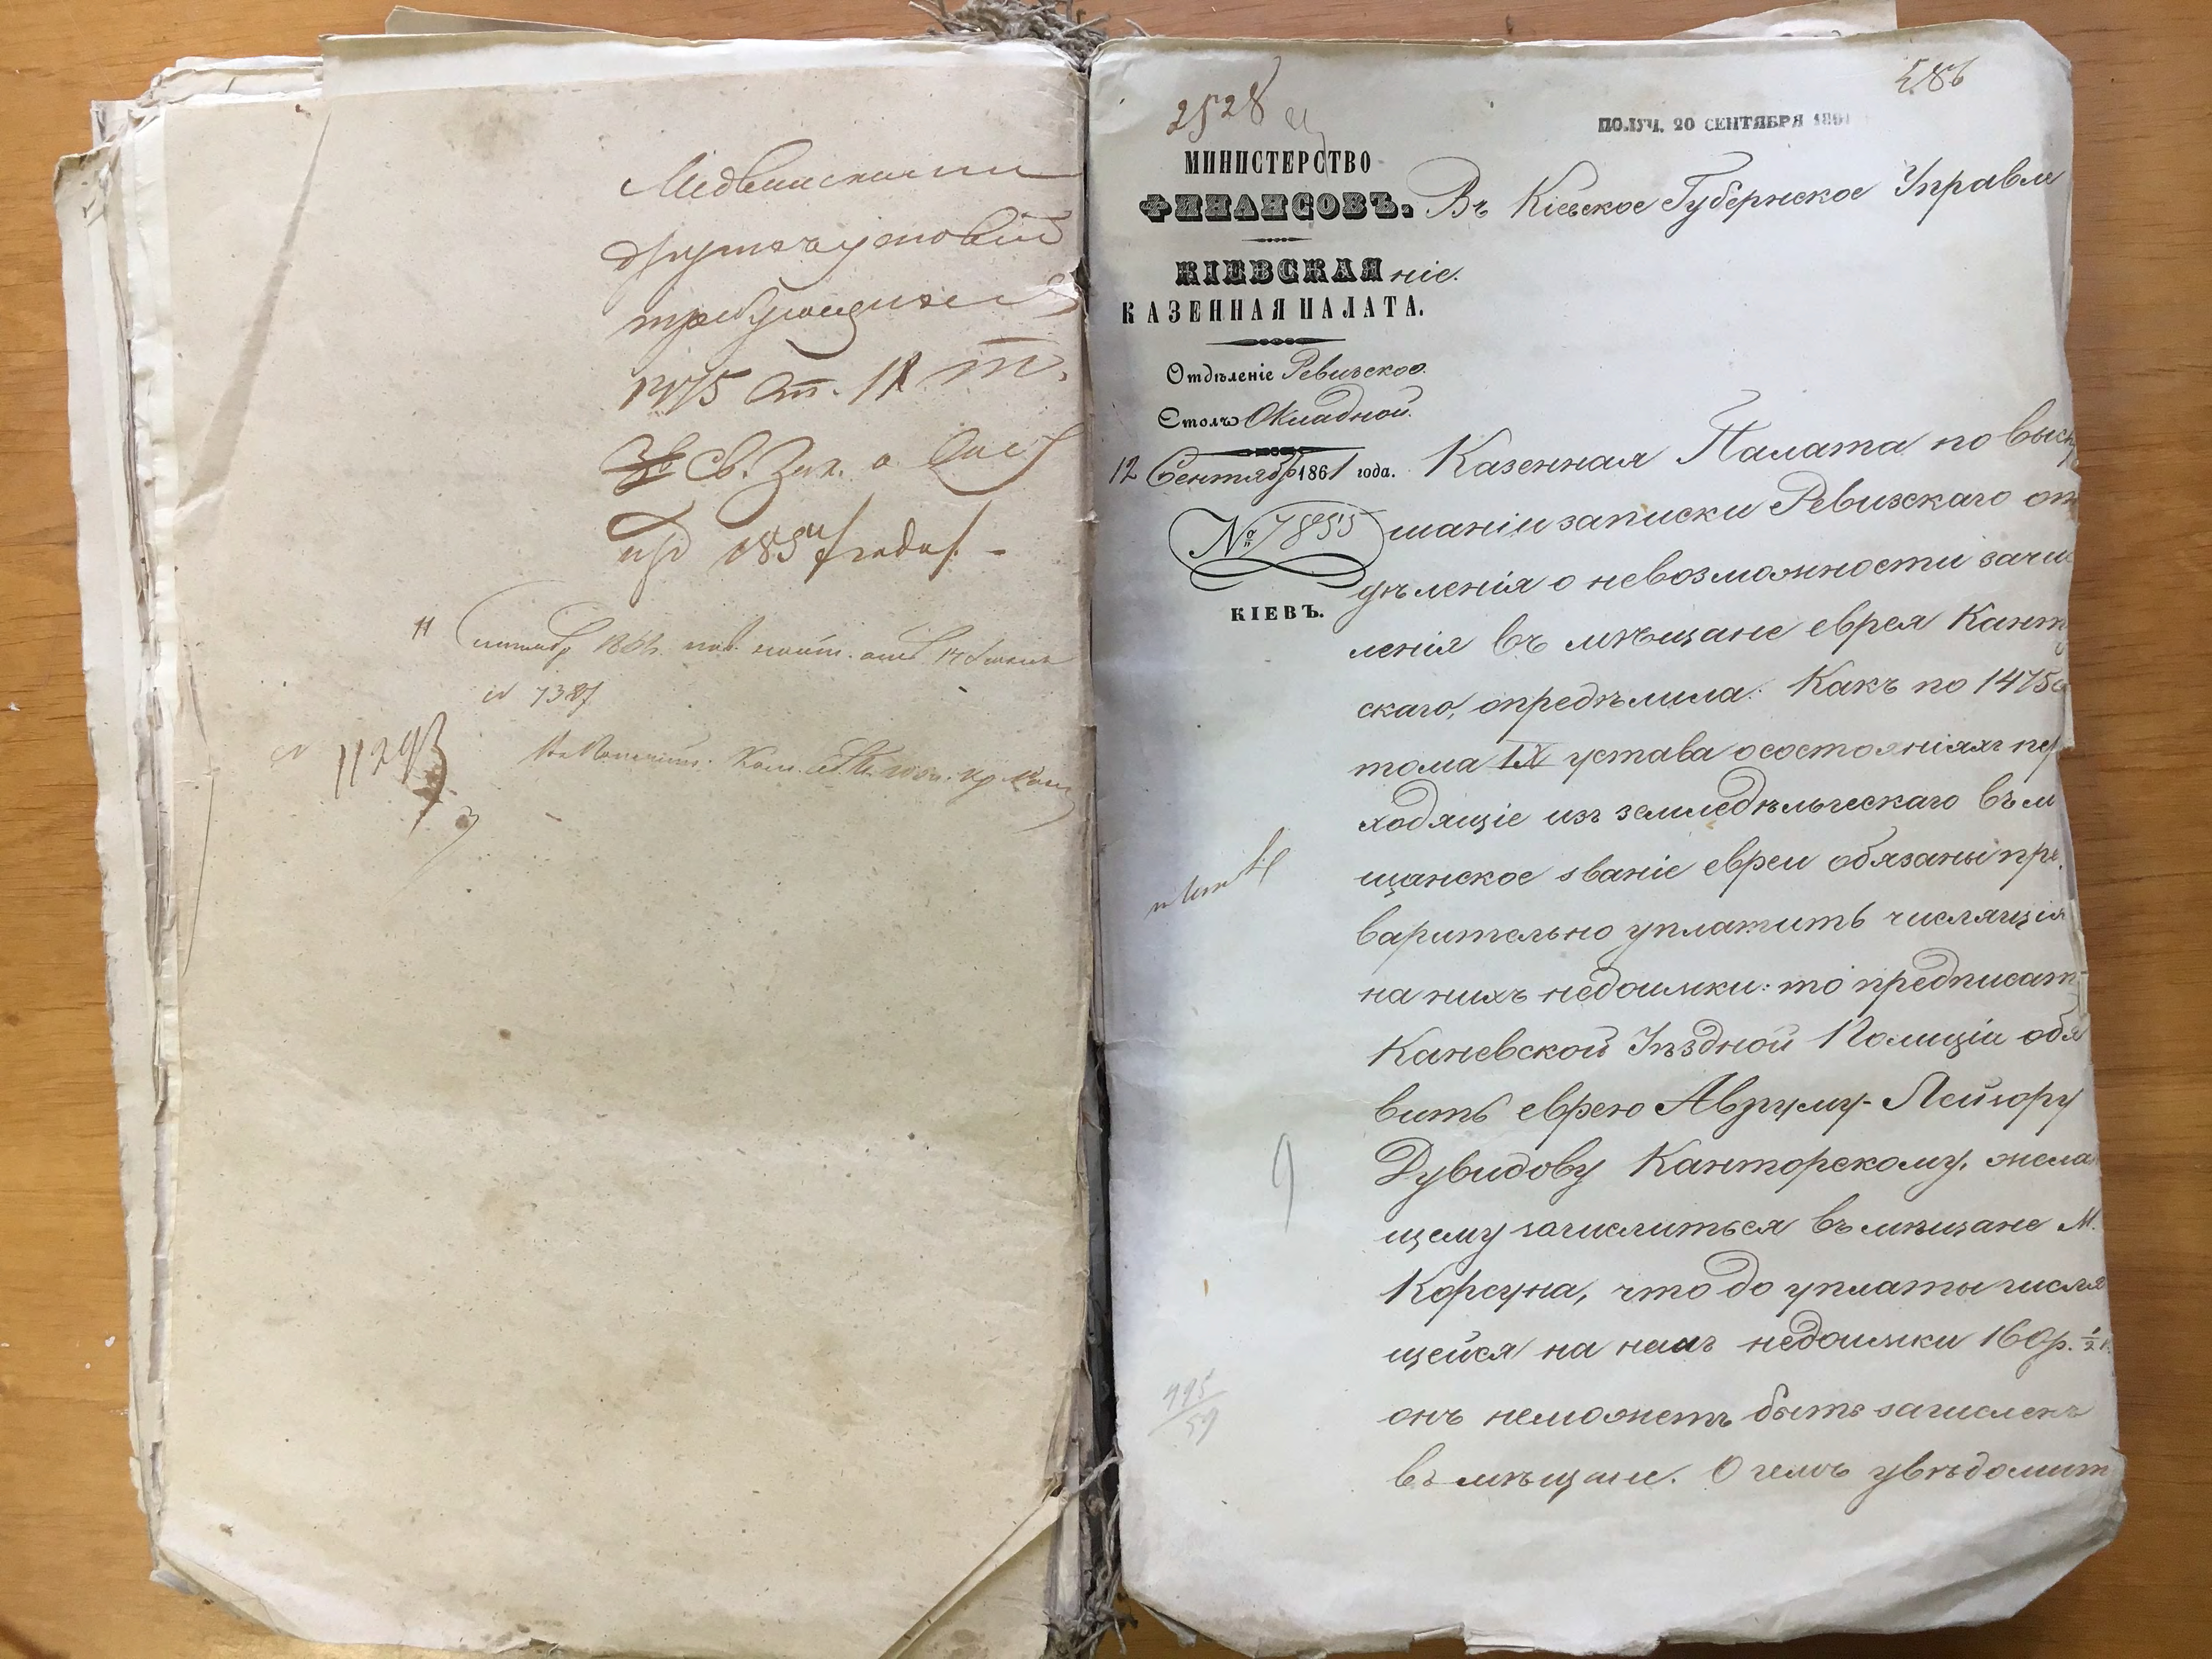 требующихся
1475 ст.
Св. Зак. о Сост
изд 1857 года. -
11
1861.
№ 7387
№ 11293
2528
586
ПОЛУЧ. 20 СЕНТЯБРЯ 1861
МИНИСТЕРСТВО
ФИНАНСОВЪ.
Въ Кіевское Губернское Управле
КІЕВСКАЯ
ніе.
КАЗЕННАЯ ПАЛАТА.
Отдѣленіе Ревизское.
Столъ Окладной.
12 Сентября 1861 года.
№ 7855
КІЕВЪ.
Казенная Палата по выслу
шаніи записки Ревизскаго от
дѣленія о невозможности зачис
ленія въ мѣщане еврея Кантор
скаго, опредѣлила: Какъ по 1475 с
тома IX устава о состояніяхъ пер
ходящіе изъ земледѣльческаго въ м
щанское званіе евреи обязаны пред
варительно уплатить числящіяся
на нихъ недоимки: то предписать
Каневской Уѣздной Полиціи объя
вить еврею Авруму-Лейзору
Дувидову Канторскому, жела
щему зачислиться въ мѣщане М.
Корсуна, что до уплаты числя
щейся на немъ недоимки 160 р. ½ к.
онъ неможетъ быть зачисленъ
въ мѣщане. О чемъ увѣдомить
495
59